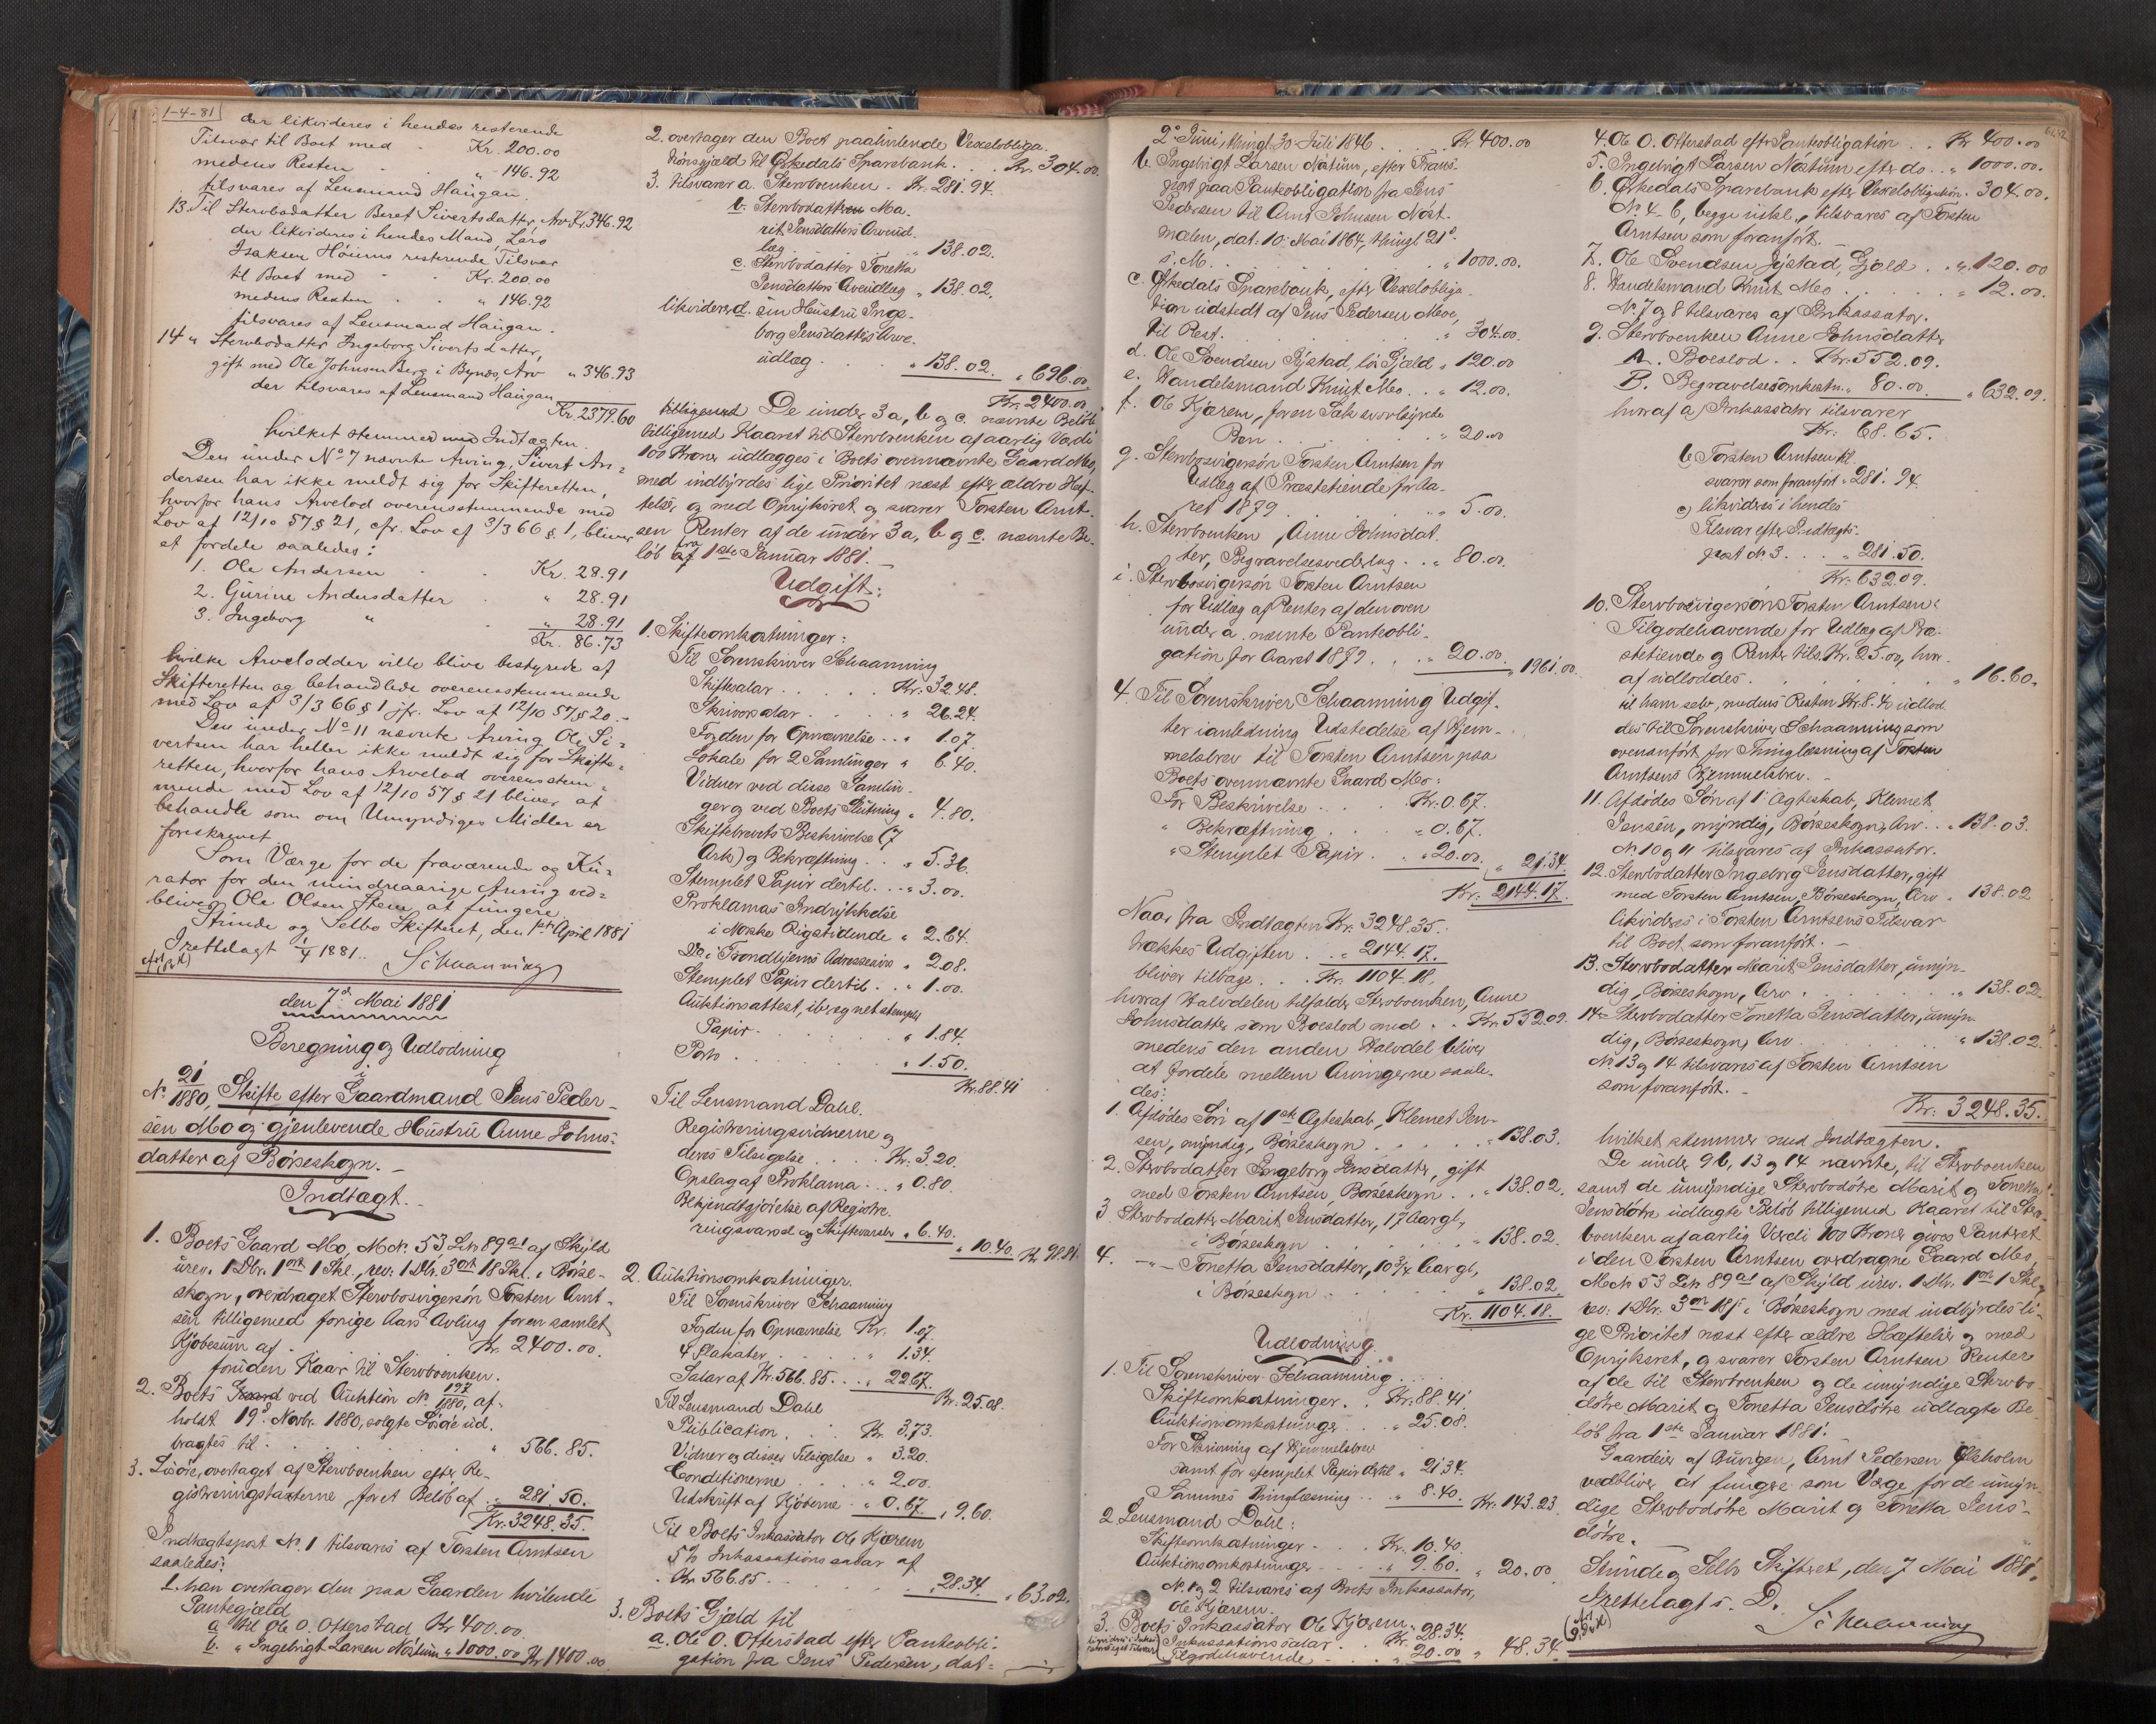 1-4-81
der likvideres i hendes resterende
Tilsvar til Boet med " Kr. 200.00
medens Resten . . " 146.92
tilsvares af Lensmand Haugan.
13. Til Stervbodatter Beret Sivertsdatter, Arv Kr. 346.92
der likvideres i hendes Mand, Lars
Isaksen Höiums resterende Tilsvar
til Boet med " Kr. 200.00
medens Resten . . " 146.92
tilsvares af Lensmand Haugan.
14 " Stervbodatter Ingeborg Sivertsdatter,
gift med Ole Johnsen Berg i Bynes, Arv " 346.93
der tilsvares af Lensmand Haugan
Kr. 2379.60
hvilket stemmer med Indtægten.
Den under No 7 nævnte Arving, Sivert An-
dersen har ikke meldt sig for Skifteretten,
hvorfor hans Arvelod overensstemmende med
Lov af 12/10 57 § 21, cfr. Lov af 3/3 66 § 1, bliver
at fordele saaledes:
1. Ole Andersen . . Kr. 28.91
2. Gurine Andersdatter . " 28.91
3. Ingeborg " " 28.91
Kr. 86.73
hvilke Arvelodder ville blive bestyrede af
Skifteretten og behandlede overensstemmende
med Lov af 3/3 66 § 1 jfr. Lov af 12/10 57 § 20.-
Den under No 11 nævnte Arving Ole Si-
vertsen har heller ikke meldt sig for Skifte-
retten, hvorfor hans Arvelod overensstem-
mende med Lov af 12/10 57 § 21 bliver at
behandle som om Umyndiges Midler er
foreskrevet.
Som Værge for de fraværende og Ku-
rator for den mindreaarige Arving ved-
bliver Ole Olsen Stem at fungere.
Strinde og Selbo Skifteret, den 1ste April 1881
Irettelagt 1/4 1881.
Schaanning
den 7de Mai 1881
Beregning og Udlodning
i
No 21/1880, Skifte efter Gaardmand Jens Peder-
sen Mo og gjenlevende Hustru Anne Johns-
datter af Börseskogn. -
Indtægt. -
1. Boets Gaard Mo, M.No. 53, L.No 89a1 af Skyld
urev. 1 Dlr. 1 ort 1 Skl., rev. 1 Dlr. 3 ort 18 Skl. i Börse-
skogn, overdraget Stervbosvigersön Torsten Arnt-
sen tilligemed forrige Aars Avling for en samlet
Kjöbesum af . . . Kr. 2400.00.
foruden Kaar til Stervboenken.
2. Boets Gaard ved Auktion No 197/1880, af-
holdt 19de Novbr. 1880, solgte Lösöre ud-
bragtes til . . . . " 566.85.
3. Lösöre, overtaget af Stervboenken efter Re-
gistreringstaxterne, for et Belöb af " 281.50.
Kr. 3248.35.
Indtægtspost No. 1 tilsvares af Torsten Arntsen
saaledes:
1. han overtager den paa Gaarden hvilende
Pantegjæld
a. til Ole O. Otterstad Kr 400.00.
b. " Ingebrigt Larsen Nöstum " 1000.00 Kr 1400.00
2. overtager den Boet paahvilende Vexelobliga-
tionsgjæld til Ørkedals Sparebank . . Kr. 304.00.
3. tilsvarer a. Stervboenken . Kr. 281.94.
b. Stervbodatteren Ma-
rit Jensdatters Arveud-
læg . . . " 138.02.
c. Stervbodatter Tonetta
Jensdatters Arveudlæg " 138.02.
likviderer d. sin Hustru Inge-
borg Jensdatters Arve-
udlæg . . " 138.02. " 696.00
Kr. 2400.00
tilligemed De under 3 a, b og c. nævnte Belöb
tilligemed Kaaret til Stervboenken af aarlig Værdi
100 Kroner udlægges i Boets ovennævnte Gaard Mo,
med indbyrdes lige Prioritet næst efter ældre Hef-
telser og med Oprykksret og svarer Torsten Arnt-
sen Renter af de under 3 a, b og c. nævnte Be-
löb fra af 1ste Januar 1881. -
Udgift:
1. Skifteomkostninger:
Til Sorenskriver Schaanning
Skiftesalar . . . . Kr. 32.48.
Skriversalar . . . " 26.24.
Fogden for Opnævnelse . . " 1.07.
Lokale for 2 Samlinger " 6.40.
Vidner ved disse Samlin-
ger og ved Boets Slutning " 4.80.
Skiftebrevets Beskrivelse (7
Ark) og Bekræftning . . " 5.36.
Stemplet Papir dertil . . " 3.00.
Proklamas Indrykkelse
i Norske Rigstidende " 2.64.
Do i Trondhjems Adresseavis " 2.08.
Stemplet Papir dertil . . " 1.00.
Auktionsattest, iberegnet stemplet
Papir . . . . " 1.84.
Porto . . . . " 1.50.
Kr. 88.41
Til Lensmand Dahl.
Registreringsvidnerne og
deres Tilsigelse . . . Kr. 3.20.
Opslag af Proklama . . " 0.80.
Bekjendtgjörelse af Registre-
ringsvarsel og Skiftevarsler " 6.40.
" 10.40. Kr. 98.81.
2. Auktionsomkostninger.
Til Sorenskriver Schaanning
Fogden for Opnævnelse Kr. 1.07.
4 Plakater . . . . " 1.34.
Salar af Kr. 566.85 . . " 22.67.
Kr. 25.08.
Til Lensmand Dahl
Publication . . Kr 3.73.
Vidner og disses Tilsigelse " 3.20.
Conditionerne . . . " 2.00.
Udskrift af Kjöberne . . " 0.67. " 9.60.
Til Boets Inkassator Ole Kjærem
5% Inkassationssalar af
Kr. 566.85 . . . . " 28.34. " 63.02.
3. Boets Gjæld til
a. Ole O. Otterstad efter Panteobli-
gation fra Jens Pedersen, dat-
2de Juni, thingl. 30 Juli 1846 . . Kr 400.00
b. Ingebrigt Larsen Nöstum, efter Trans-
port paa Panteobligation fra Jens
Pedersen til Arnt Johnsen Nöst-
mælen, dat. 10. Mai 1864, thingl. 21de
s. M. . . . . " 1000.00.
c. Ørkedals Sparebank, efter Vexelobliga-
tion udstedt af Jens Pedersen Moe,
til Rest . . . . " 304.00.
d. Ole Svendsen Gystad, lös Gjæld " 120.00
e. Handelsmand Knut Meo . . " 12.00.
f. Ole Kjærem, for en Sæk svovlsyrede
Ben . . . . " 20.00
g. Stervbosvigersön Torsten Arntsen for
Udlæg af Præstetiende for Aa-
ret 1879 . . . " 5.00.
h. Stervboenken, Anne Johnsdat-
ter, Begravelsesvederlag . . " 80.00.
i. Stervbosvigersön Torsten Arntsen
for Udlæg af Renter af den oven
under a. nævnte Panteobli-
gation for Aaret 1879 . . " 20.00. " 1961.00.
4. Til Sorenskriver Schaanning Udgif-
ter i anledning Udstedelse af Hjem-
melsbrev til Torsten Arntsen paa
Boets ovennævnte Gaard Mo:
For Beskrivelse . . . Kr. 0.67.
" Bekræftning . . . " 0.67.
" Stemplet Papir . . " 20.00. " 21.34.
Kr. 2144.17.
Naar fra Indtægten Kr. 3248.35.
trækkes Udgiften . . " 2144.17.
bliver tilbage . . Kr. 1104.18,
hvoraf Halvdelen tilfalder Stervboenken, Anne
Johnsdatter som Boeslod med . . Kr. 552.09.
medens den anden Halvdel bliver
at fordele mellem Arvingerne saale-
des:
1. Afdödes Sön af 1ste Ægteskab, Klemet Jen-
sen, myndig, Börseskogn . . . . " 138.03.
2. Stervbodatter Ingeborg Jensdatter, gift
med Torsten Arntsen, Börseskogn . . " 138.02.
3. Stervbodatter Marit Jensdatter, 17 Aar gl.,
i Börseskogn . . . . " 138.02.
4. - " - Tonetta Jensdatter, 10 3/4 Aar gl.,
i Börseskogn . . . . " 138.02.
Kr. 1104.18.
Udlodning
1. Til Sorenskriver Schaanning . . .
Skifteomkostninger . . Kr. 88.41
Auktionsomkostninger . . " 25.08.
For Skrivning af Hjemmelsbrev
samt for stemplet Papir dertil " 21.34.
Sammes Thinglæsning . . " 8.40. Kr. 143.23
2. Lensmand Dahl:
Skifteomkostninger . . . Kr. 10.40.
Auktionsomkostninger . . " 9.60. " 20.00
No. 1 og 2 tilsvares af Boets Inkassator,
Ole Kjærem.
3. Boets Inkassator Ole Kjærem.
Inkassationssalar . . Kr. 28.34.
Tilgodehavende . . . " 20.00 " 48.34.
4. Ole O. Otterstad efter Panteobligation . . Kr 400.00
5. Ingebrigt Larsen Nöstum efter do . . " 1000.00.
6. Ørkedals Sparebank efter Vexelobligation . 304.00.
No. 4-6, begge inkl., tilsvares af Torsten
Arntsen som foranfört.
7. Ole Svendsen Gystad, Gjæld . . " 120.00
8. Handelsmand Knut Meo . . . . " 12.00.
No. 7 og 8 tilsvares af Inkassator.
9. Stervboenken Anne Johnsdatter
A. Boeslod . . Kr. 552.09.
B. Begravelsesomkostn. " 80.00. " 632.09.
hvoraf a, Inkassator tilsvarer
Kr. 68.65.
b, Torsten Arntsen til-
svarer som foranfört " 281.94.
c, likvideres i hendes
Tilsvar efter Indtægts-
post No 3. . . . " 281.50.
Kr. 632.09.
10. Stervbosvigersön Torsten Arntsens
Tilgodehavende for Udlæg af Præ-
stetiende og Renter tils. Kr. 25.00, hvor-
af udloddes . . . . " 16.60.
til ham selv, medens Resten Kr. 8.40 udlod-
des til Sorenskriver Schaanning som
ovenanfört for Thinglæsning af Torsten
Arntsens Hjemmelsbrev. -
11. Afdödes Sön af 1. Ægteskab, Klemet
Jensen, myndig, Börseskogn, Arv . . " 138.03.
No. 10 og 11 tilsvares af Inkassator.
12. Stervbodatter Ingeborg Jensdatter, gift
med Torsten Arntsen, Börseskogn, Arv " 138.02
likvideres i Torsten Arntsens Tilsvar
til Boet som foranfört. -
13. Stervbodatter Marit Jensdatter, umyn-
dig, Börseskogn, Arv . . . " 138.02.
14. Stervbodatter Tonetta Jensdatter, umyn-
dig, Börseskogn, Arv . . . " 138.02.
No. 13 og 14 tilsvares af Torsten Arntsen
som foranfört. -
Kr. 3248.35.
hvilket stemmer med Indtægten.
De under 9b, 13 og 14 nævnte, til Stervboenken
samt de umyndige Stervbodötre Marit og Tonetta
Jensdötre udlagte Belöb tilligemed Kaaret til Sterv-
boenken af aarlig Værdi 100 Kroner gives Panteret
i den Torsten Arntsen overdragne Gaard Mo,
M.No 53 L.No 89a1 af Skyld urev. 1 Dlr. 1 ort 1 Skl.,
rev. 1 Dlr. 3 ort 18 s i Börseskogn med indbyrdes li-
ge Prioritet næst efter ældre Hæftelser og med
Opryksret, og svarer Torsten Arntsen Renter
af de til Stervboenken og de umyndige Stervbo-
dötre Marit og Tonetta Jensdötre udlagte Be-
löb fra 1ste Januar 1881.
Gaardeier af Viggen, Arnt Pedersen
vedbliver at fungere som Værge for de umyn-
dige Stervbodötre Marit og Tonetta Jens-
dötre. -
Strinde og Selbo Skifteret, den 7 Mai 1881.
Irettelagt s. D.
Schaanning